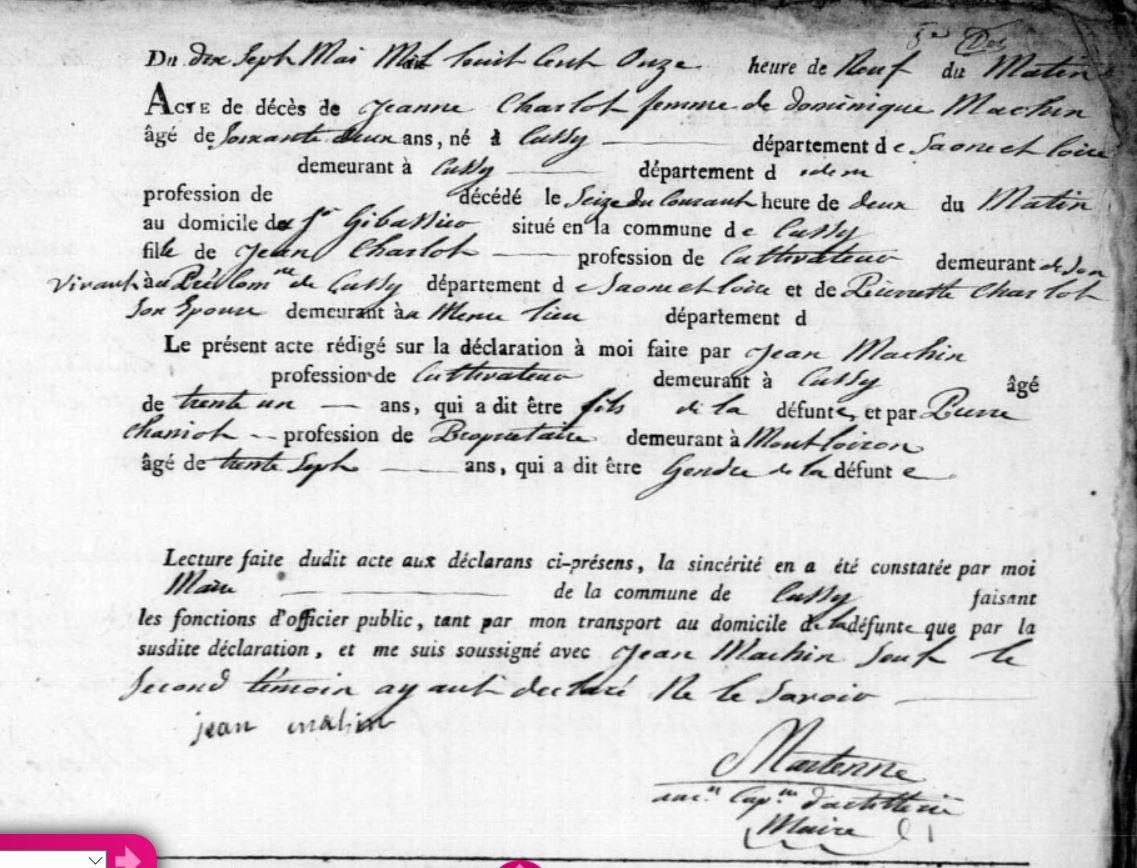 Du dix Sept Mai Mil huit Cent Onze heure de Neuf du Matin
ACTE de décès de Jeanne Charlot femme de dominique Machin
âgé de Soixante deux ans, né à Cussy département de Saone et loire
demeurant à Cussy département d idem
profession de décédé le Seize du Courant heure de deux du Matin
au domicile de Sr situé en la commune de Cussy
fille de Jean Charlot profession de Cultivateur demeurant de Son
Vivant au de Cussy département de Saone et loire et de Pierrette Charlot
Son Epouse demeurant au Meme lieu département d
Le présent acte rédigé sur la déclaration à moi faite par Jean Machin
profession de Cultivateur demeurant à Cussy âgé
de trente un ans, qui a dit être fils de la défunte, et par Pierre
Charlot profession de Proprietaire demeurant à
âgé de trente Sept ans, qui a dit être Gendre de la défunte
Lecture faite dudit acte aux déclarans ci-présens, la sincérité en a été constatée par moi
Maire de la commune de Cussy faisant
les fonctions d'officier public, tant par mon transport au domicile de la défunte que par la
susdite déclaration, et me suis soussigné avec Jean Machin Seul le
Second témoin ayant declaré Ne le Savoir
jean machin
Martenne
anc.n Cap.ne d'artillerie
Maire